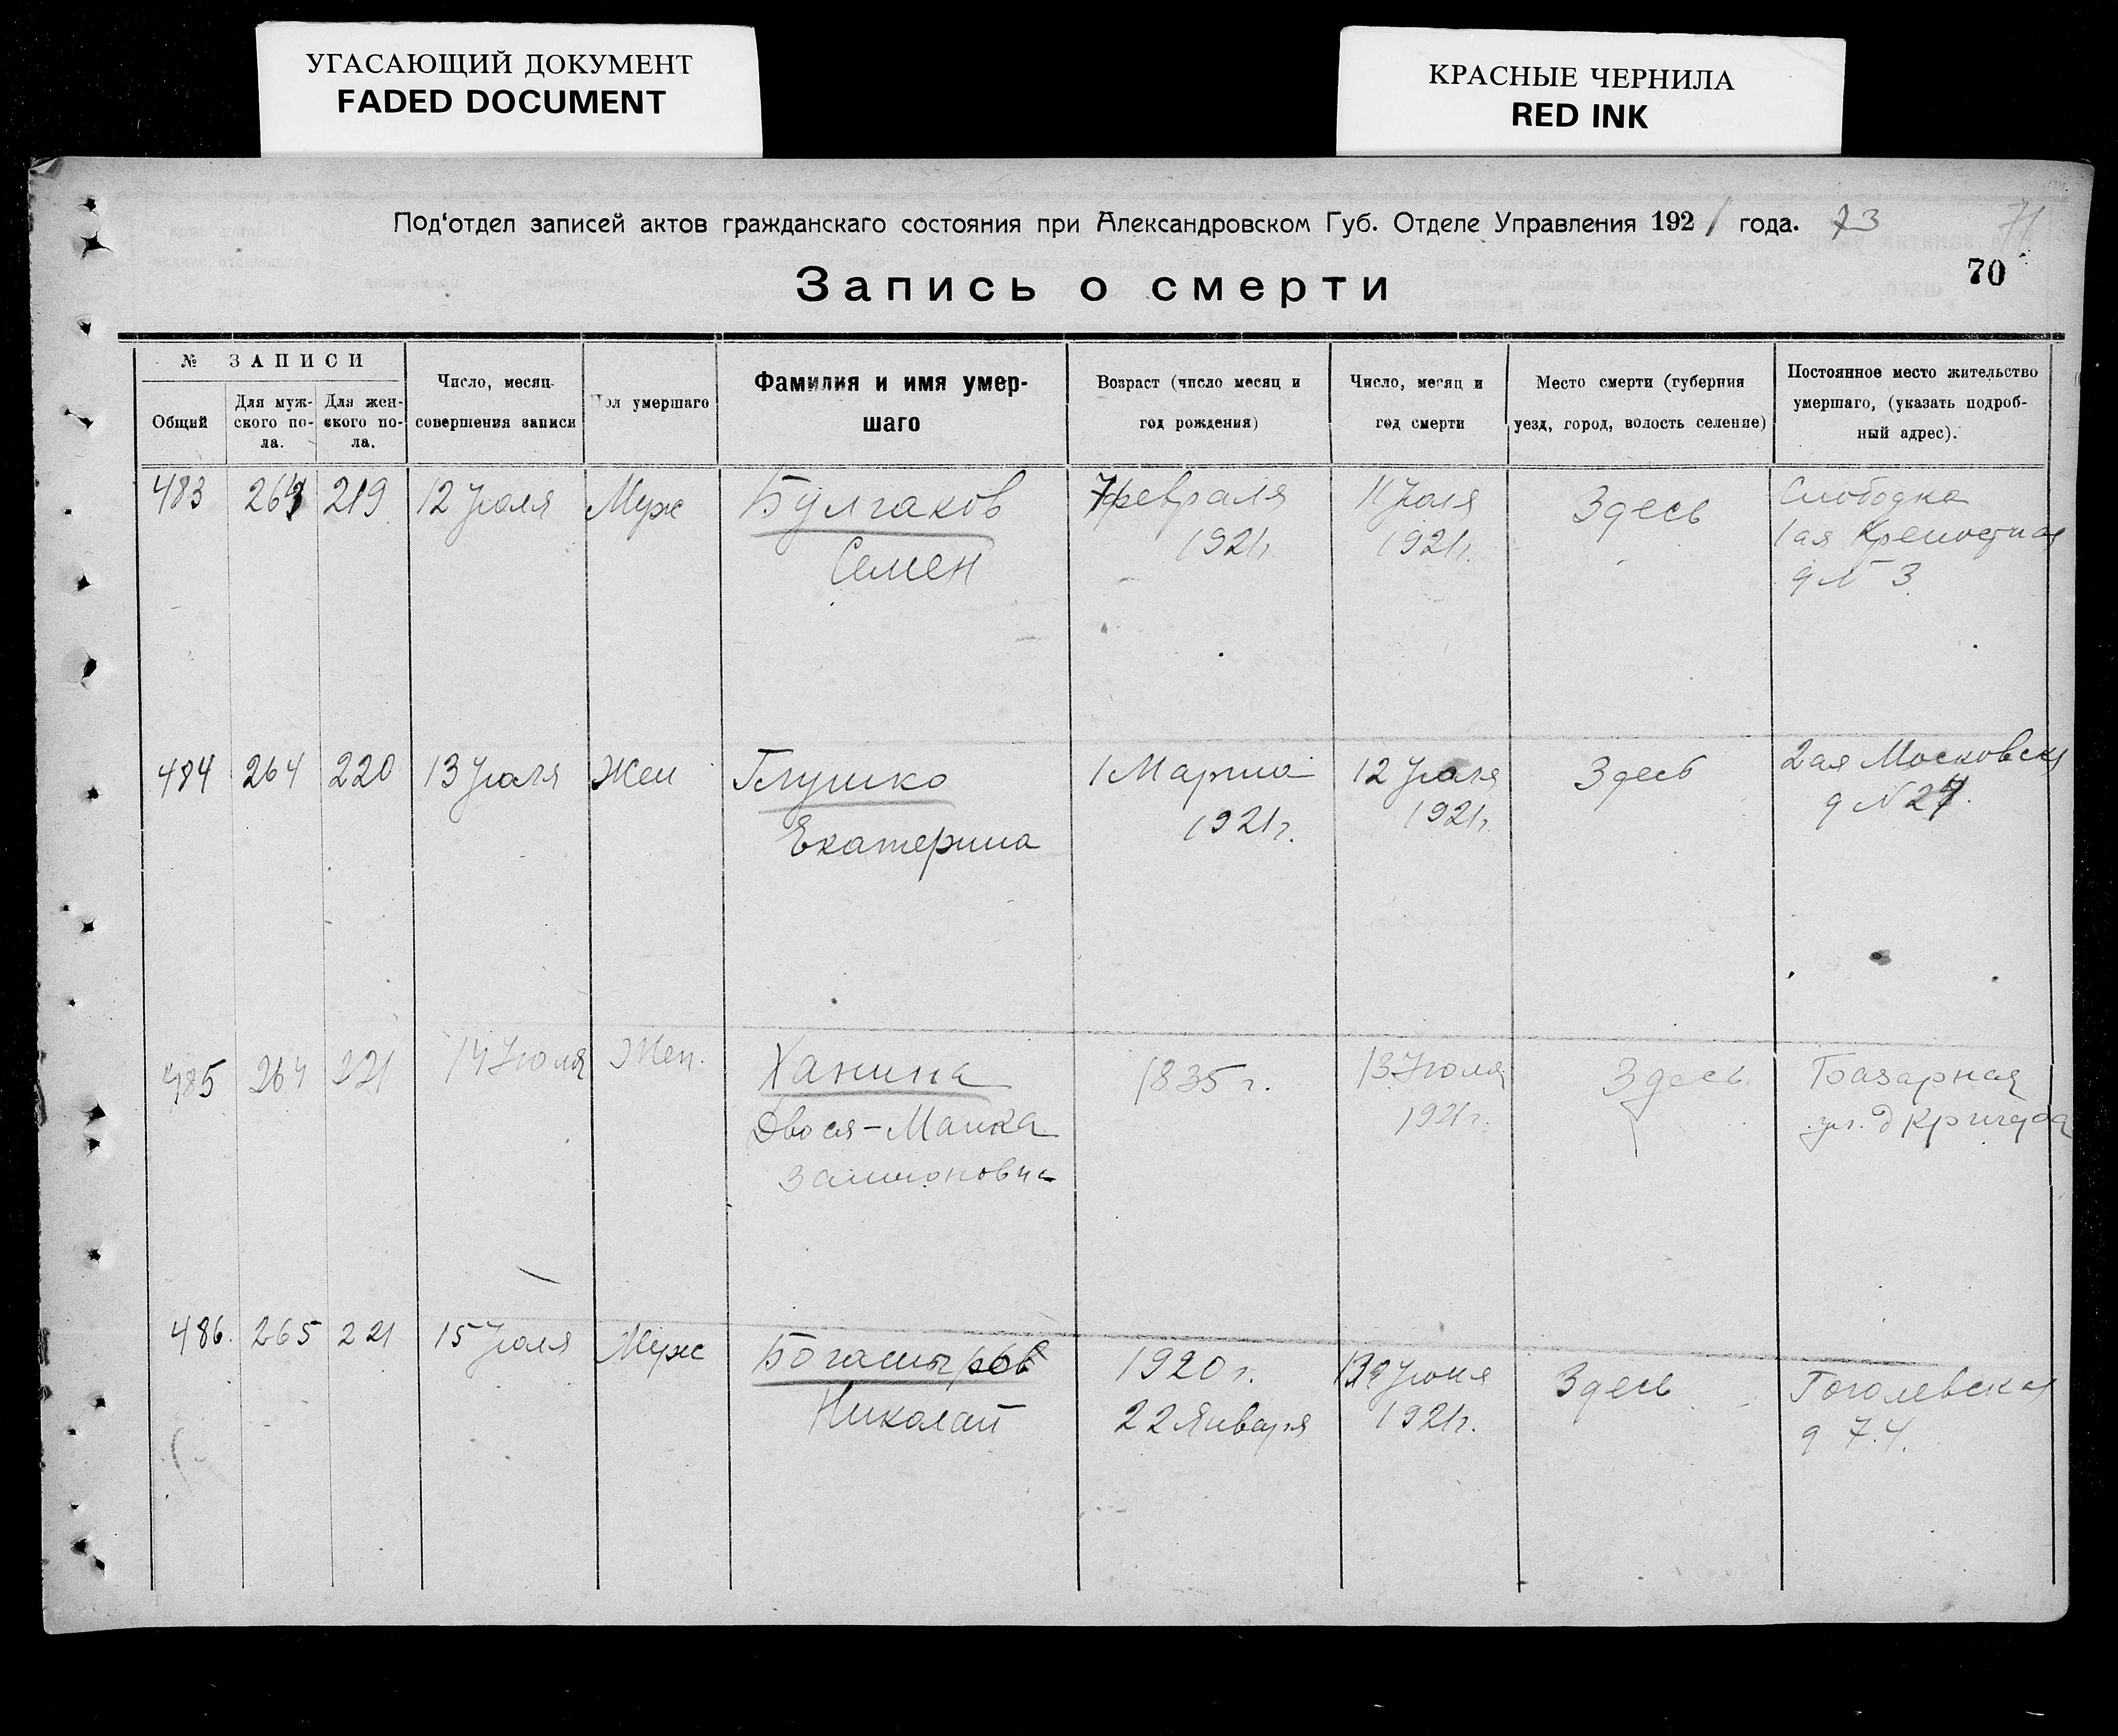 УГАСАЮЩИЙ ДОКУМЕНТ
FADED DOCUMENT
КРАСНЫЕ ЧЕРНИЛА
RED INK
Под‘отдел записей актов гражданскаго состояния при Александровском Губ. Отделе Управления 1921 года. 73 71
70
Запись о смерти
№ ЗАПИСИ
Общий
Для муж-
ского по-
ла.
Для жен-
ского по-
ла.
Число, месяц
совершения записи
Пол умершаго
Фамилия и имя умер-
шаго
Возраст (число месяц и
год рождения)
Число, месяц и
год смерти
Место смерти (губерния
уезд, город, волость селение)
Постоянное место жительство
умершаго, (указать подроб-
ный адрес).
483 264 219 12 Июля Муж Булгаков 7 февраля 11 Июля Здесь Слободка
Семен 1921г. 1921г. 1ая Крепостная
д N 3.
484 264 220 13 Июля Жен Глушко 1 Марта 12 Июля Здесь 2ая Московская
Екатерина 1921г. 1921г. д N
485 264 221 14 Июля Жен. Ханина 1835 г. 13 Июля Здесь Базарная
Двося-Манка 1921г. ул. д
486. 265 221 15 Июля Муж Богатырев 1920 г. Здесь Гоголевская
Николай 22 Января 1921г. д 74.